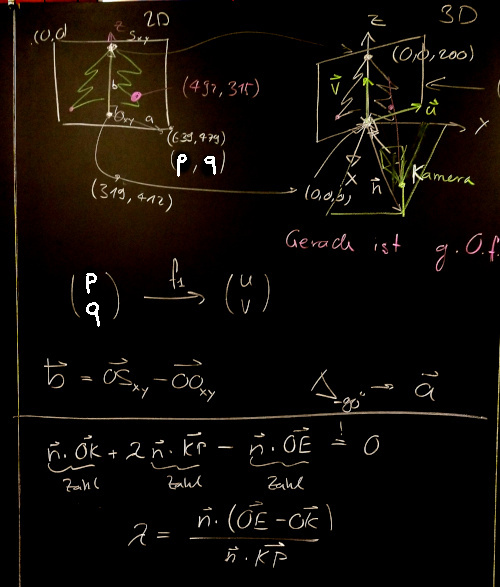 2D
(0,0
z
S_xy
b
(492, 315)
O_xy
a
(639, 479)
(p, q)
(319, 412)
3D
z
(0,0,200)
v⃗
u⃗
Y
X
n⃗
(0,0,0)
Kamera
Gerade ist g. O.f.
(p q) f₁→ (u v)
b⃗ = OS⃗_xy − OO⃗_xy
Δ_-90° → a⃗
n⃗ · OK⃗ + λ n⃗ · KP⃗ − n⃗ · OE⃗ =! 0
Zahl Zahl Zahl
λ = n⃗ · (OE⃗ − OK⃗) / n⃗ · KP⃗